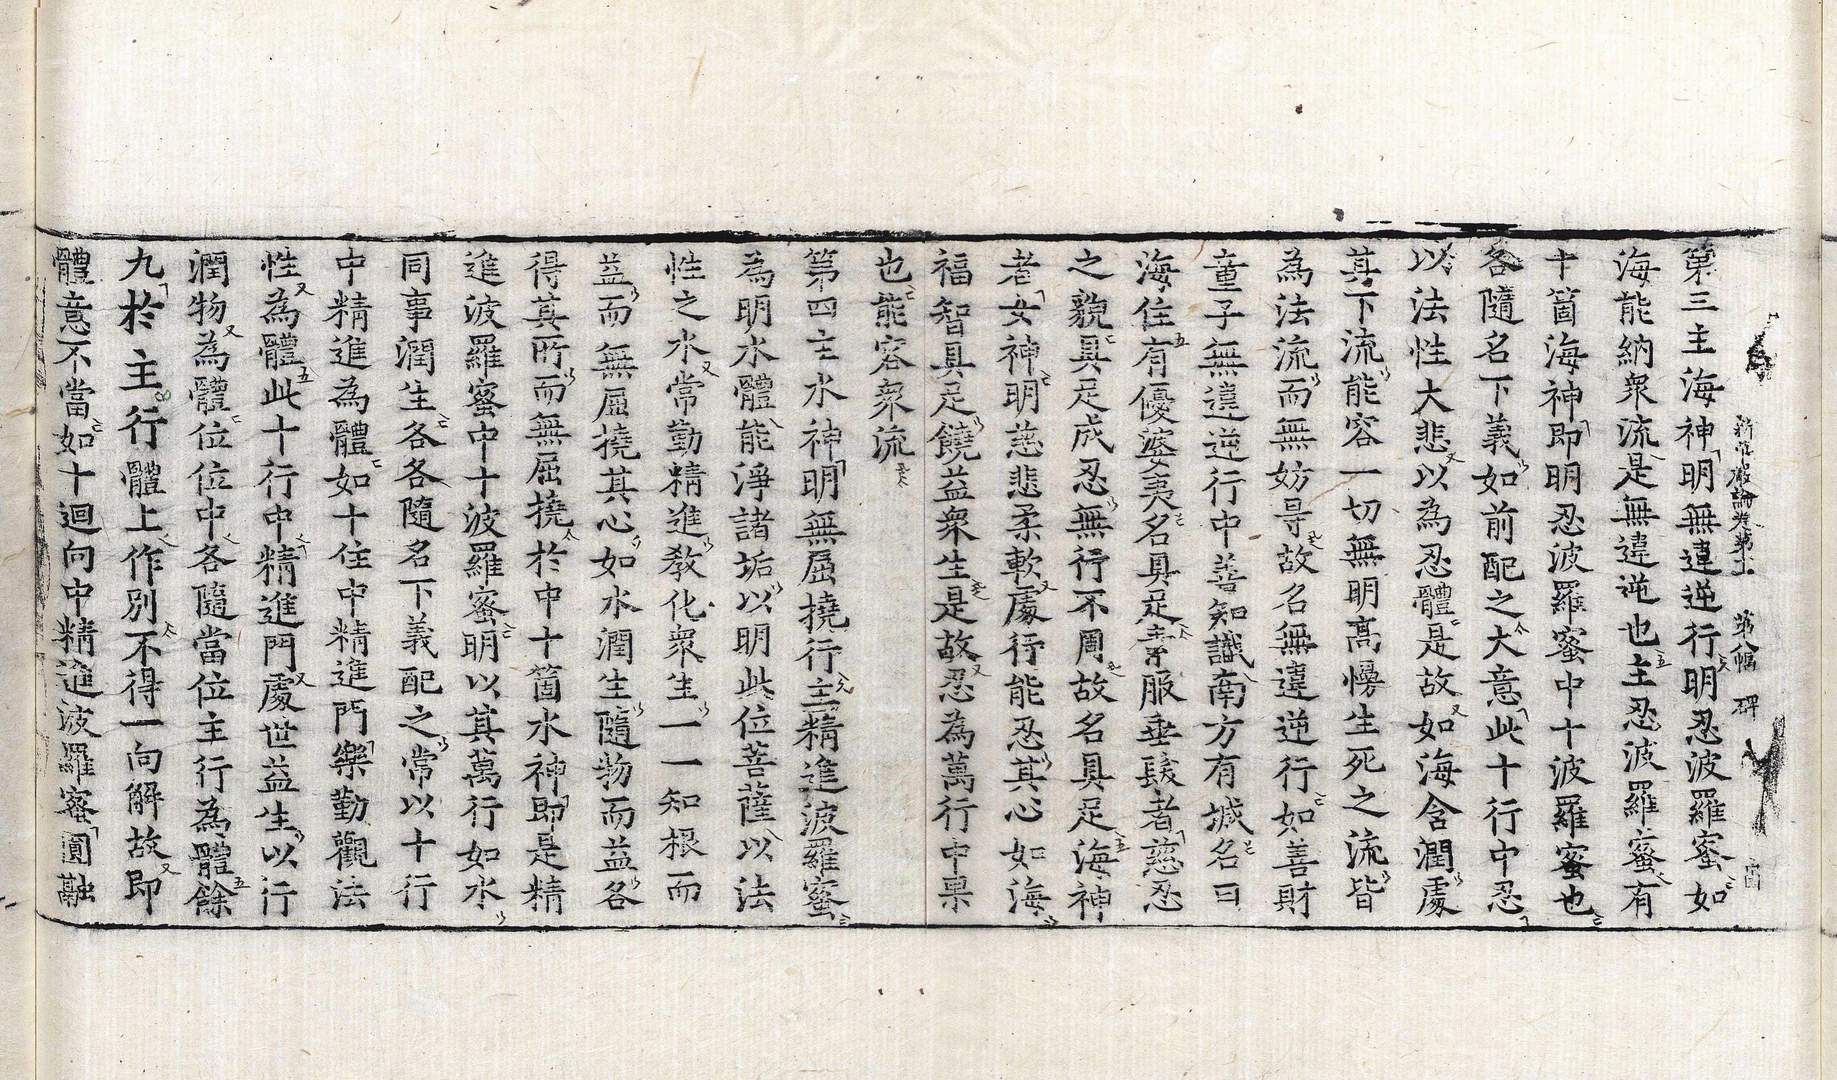 新華嚴論卷第十一 第八幅 碑
第三主海神明無違逆行明忍波羅蜜如
海能納衆流是無違逆也主忍波羅蜜有
十箇海神即明忍波羅蜜中十波羅蜜也
各隨名下義如前配之大意此十行中忍
以法性大悲以為忍體是故如海含潤處
其下流能容一切無明高慢生死之流皆
為法流而無妨㝵故名無違逆行如善財
童子無違逆行中善知識南方有城名曰
海住有優婆夷名具足素服垂髮者慈忍
之貌具足成忍無行不周故名具足海神
者女神明慈悲柔軟處行能忍其心如海
福智具足饒益衆生是故忍為萬行中果
也能容衆流
第四主水神明無屈撓行主精進波羅蜜
為明水體能淨諸垢以明此位菩薩以法
性之水常勤精進教化衆生一一知根而
益而無屈撓其心如水潤生隨物而益各
得其所而無屈撓於中十箇水神即是精
進波羅蜜中十波羅蜜明以其萬行如水
同事潤生各各隨名下義配之常以十行
中精進為體如十住中精進門樂勤觀法
性為體此十行中精進門處世益生以行
潤物為體位位中各隨當位主行為體餘
九於主行體上作別不得一向解故即
體意不當如十迴向中精進波羅蜜圓融